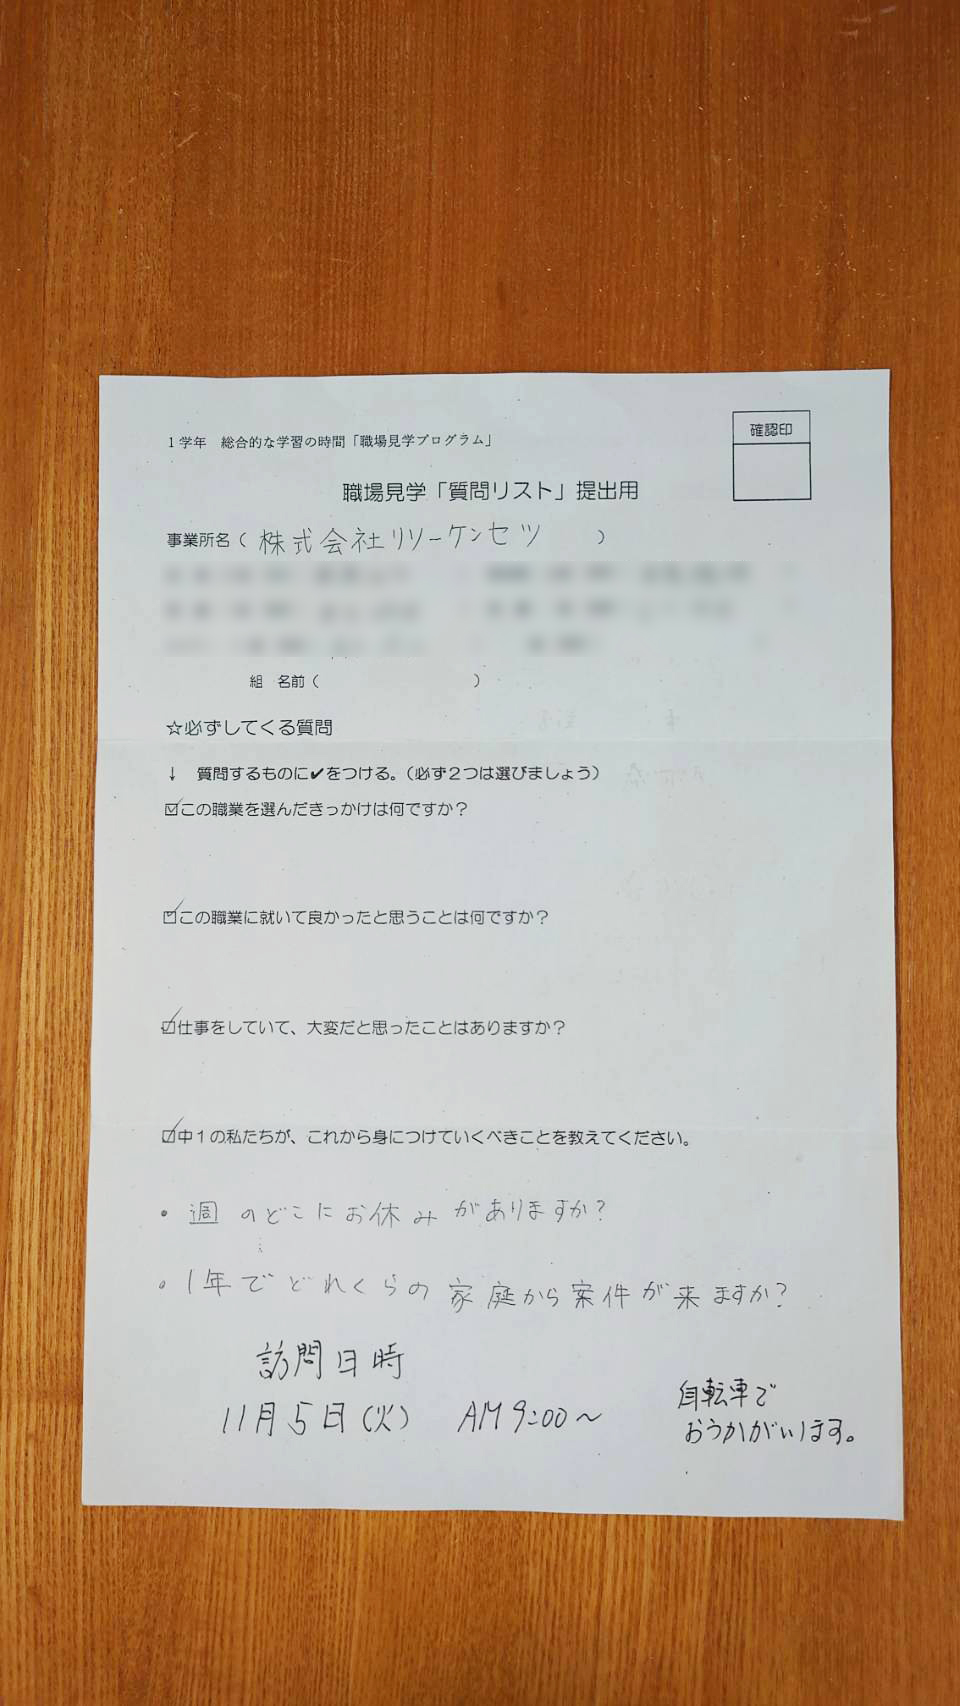 1学年　総合的な学習の時間「職場見学プログラム」
確認印
職場見学「質問リスト」提出用
事業所名（ 株式会社リソーケンセツ ）
組　名前（　　　　　）
☆必ずしてくる質問
↓　質問するものに✔をつける。（必ず２つは選びましょう）
☑この職業を選んだきっかけは何ですか？
☑この職業に就いて良かったと思うことは何ですか？
☑仕事をしていて、大変だと思ったことはありますか？
☑中１の私たちが、これから身につけていくべきことを教えてください。
・週のどこにお休みがありますか？
・1年でどれくらの家庭から案件が来ますか？
訪問日時
11月5日(火)　AM9:00～
自転車で
おうかがいします。